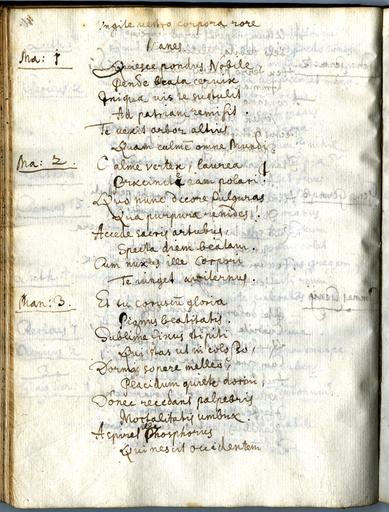 ingite vestro corpora rore
Manes.
Ma: 1 Quiesce pondus Nobile
Pende beata cervix
Iniqua vis te sustulit
Ad patriam remisit.
Te vexit arbor altius
Quam culmen omne Mundi
Ma: 2. Calme vertex, laurea
cincte iam polari!
Quo nunc decore fulguras
Qua purpura renides!
Accede sacris artubus,
Specta diem beatam.
Cum nuxus ille corpori
Te iunget aviternus.
Man: 3. Et tu coruscum gloria
Pignus beatitatis.
Sublime pectus stipiti
Qui stas ut in
Dormi sopore melleo,
Placidum quiete dormi
Donec recedant palpebris
Mortalitatis umbrae.
Aspiret Phosphorus
Qui nescit occidentem